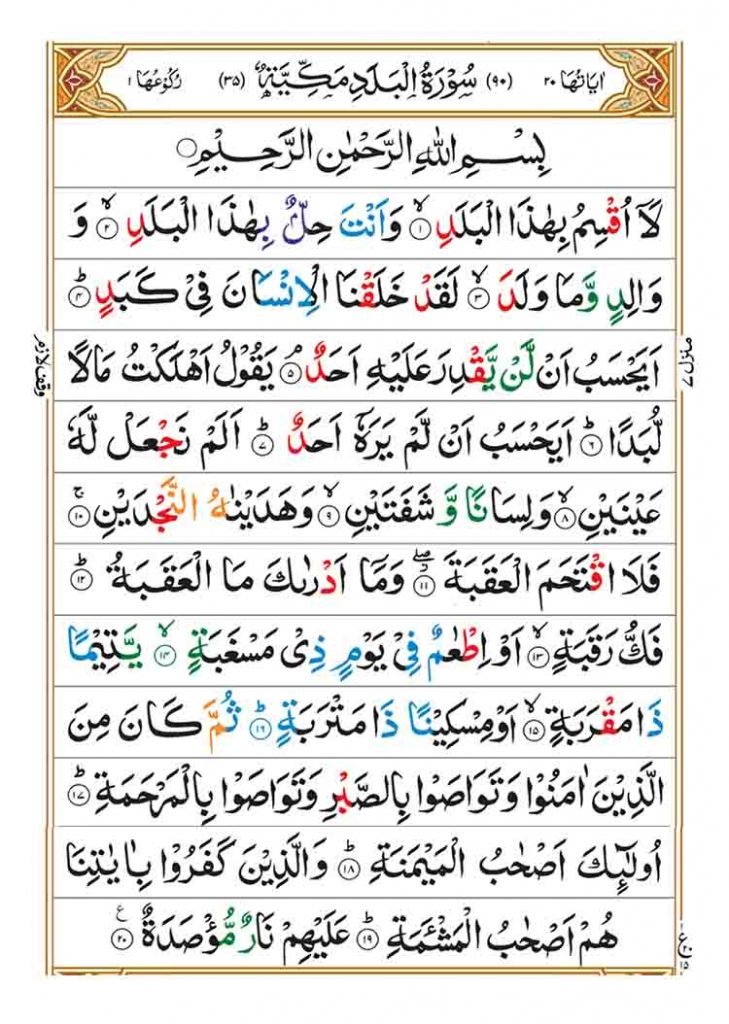 اٰيَاتُهَا ٢٠ (٩٠) سُوْرَةُ الْبَلَدِ مَكِّيَّةٌ (٣٥) رُكُوْعُهَا ١
بِسْمِ اللّٰهِ الرَّحْمٰنِ الرَّحِيْمِ ○
لَاۤ اُقْسِمُ بِهٰذَا الْبَلَدِ ۙ﴿١﴾ وَاَنْتَ حِلٌّۢ بِهٰذَا الْبَلَدِ ۙ﴿٢﴾ وَ
وَالِدٍ وَّمَا وَلَدَ ۙ﴿٣﴾ لَقَدْ خَلَقْنَا الْاِنْسَانَ فِيْ كَبَدٍ ؕ﴿٤﴾
اَيَحْسَبُ اَنْ لَّنْ يَّقْدِرَ عَلَيْهِ اَحَدٌ ۘ﴿٥﴾ يَقُوْلُ اَهْلَكْتُ مَالًا
لُّبَدًا ؕ﴿٦﴾ اَيَحْسَبُ اَنْ لَّمْ يَرَهٗۤ اَحَدٌ ؕ﴿٧﴾ اَلَمْ نَجْعَلْ لَّهٗ
عَيْنَيْنِ ۙ﴿٨﴾ وَلِسَانًا وَّ شَفَتَيْنِ ۙ﴿٩﴾ وَهَدَيْنٰهُ النَّجْدَيْنِ ۚ﴿١٠﴾
فَلَا اقْتَحَمَ الْعَقَبَةَ ۖ﴿١١﴾ وَمَاۤ اَدْرٰىكَ مَا الْعَقَبَةُ ؕ﴿١٢﴾
فَكُّ رَقَبَةٍ ۙ﴿١٣﴾ اَوْ اِطْعٰمٌ فِيْ يَوْمٍ ذِيْ مَسْغَبَةٍ ۙ﴿١٤﴾ يَّتِيْمًا
ذَا مَقْرَبَةٍ ۙ﴿١٥﴾ اَوْ مِسْكِيْنًا ذَا مَتْرَبَةٍ ؕ﴿١٦﴾ ثُمَّ كَانَ مِنَ
الَّذِيْنَ اٰمَنُوْا وَتَوَاصَوْا بِالصَّبْرِ وَتَوَاصَوْا بِالْمَرْحَمَةِ ؕ﴿١٧﴾
اُولٰٓئِكَ اَصْحٰبُ الْمَيْمَنَةِ ؕ﴿١٨﴾ وَالَّذِيْنَ كَفَرُوْا بِاٰيٰتِنَا
هُمْ اَصْحٰبُ الْمَشْـَٔمَةِ ؕ﴿١٩﴾ عَلَيْهِمْ نَارٌ مُّؤْصَدَةٌ ﴿٢٠﴾ ع
منزل ٧
وقف لازم
ع ١٥